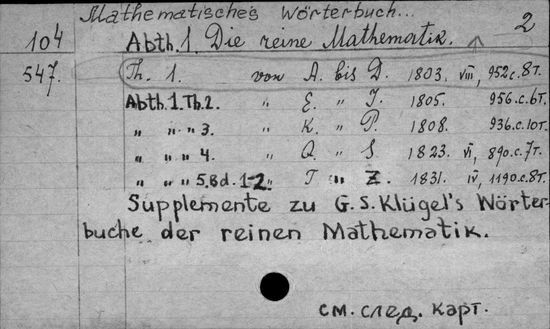 Mathematisches Wörterbuch... 2
104 Abth. 1. Die reine Mathematik.
547. Th. 1. von A. bis D. 1803. VIII, 952 с. 8 т.
Abth. 1. Th. 2. " E. " J. 1805. 956 с. 6 т.
" " " 3. " K. " P. 1808. 936 с. 10 т.
" " " 4. " Q. " S. 1823. VI, 890 с. 7 т.
" " " 5. Bd. 1-2. " T " Z. 1831. IV, 1190 с. 8 т.
Supplemente zu G. S. Klügel's Wörter-
buche der reinen Mathematik.
см. след. карт.